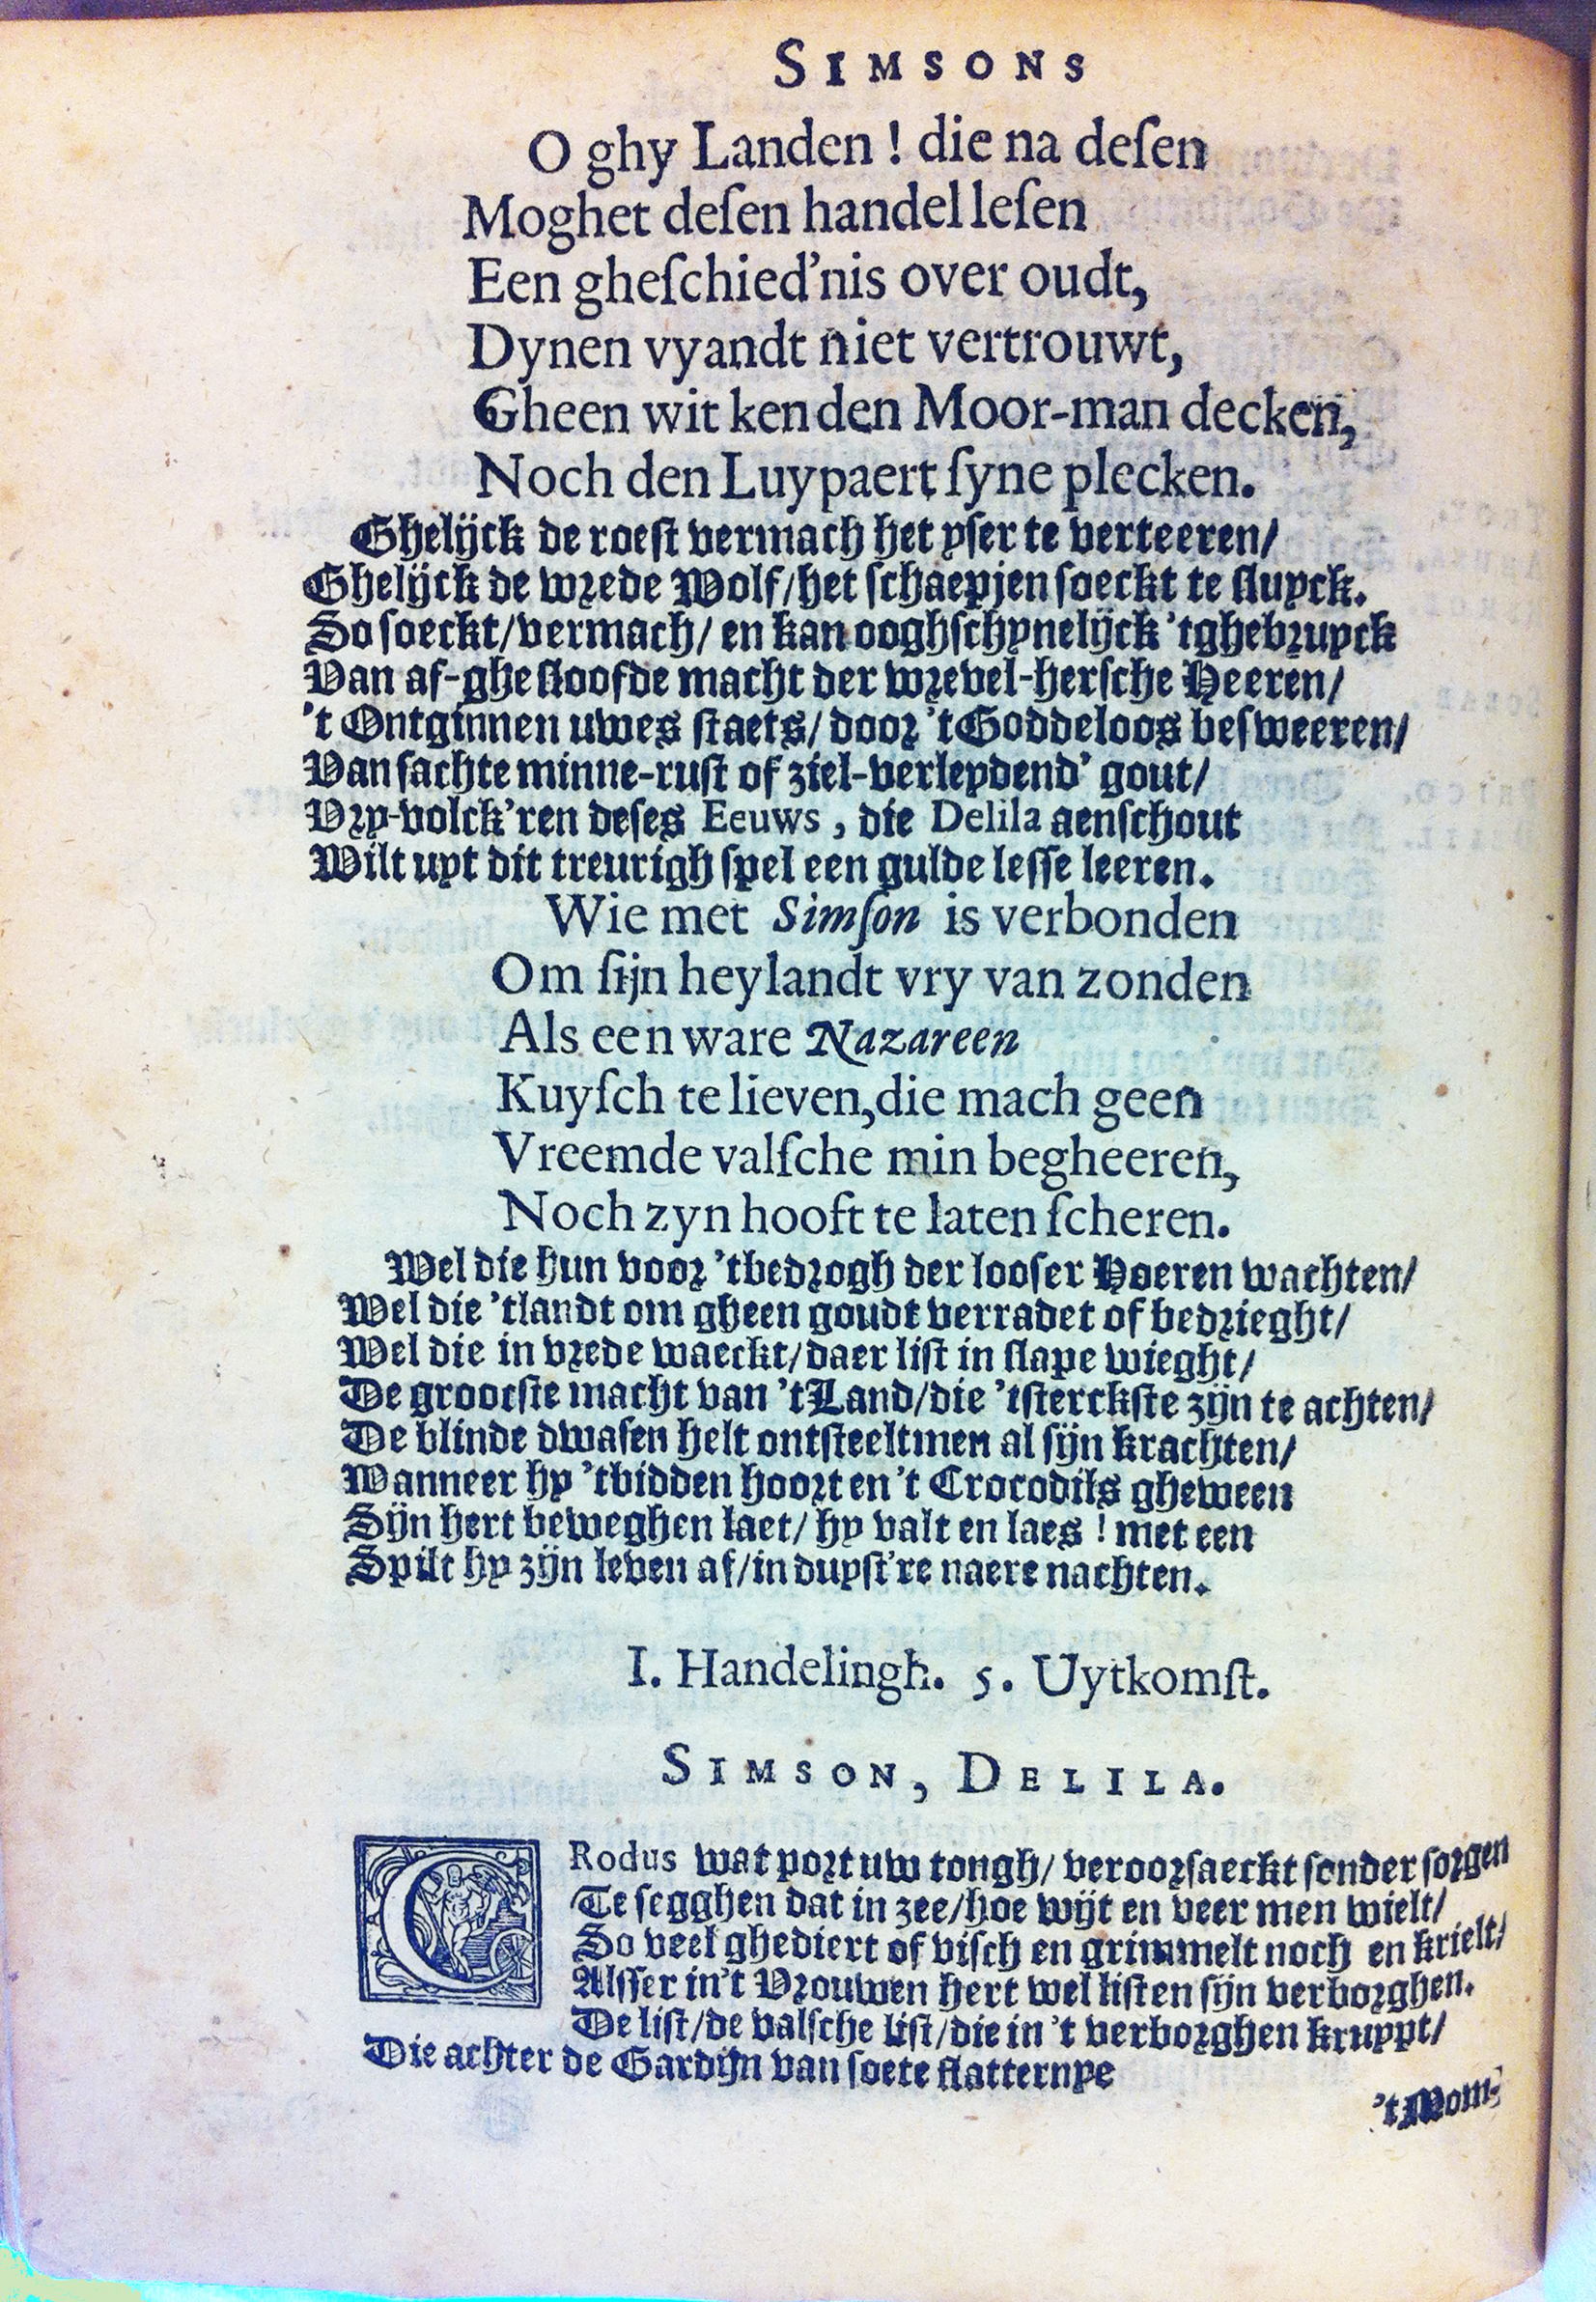 SIMSONS
O ghy Landen ! die na deſen
Moghet deſen handel leſen
Een gheſchied'nis over oudt,
Dynen vyandt niet vertrouwt,
Gheen wit ken den Moor-man decken,
Noch den Luypaert ſyne plecken.
Ghelijck de roeſt vermach het yſer te verteeren/
Ghelijck de wrede Wolf/het ſchaepjen ſoeckt te ſluyck.
So ſoeckt/vermach/ en kan ooghſchynelijck 'tghebruyck
Van af-gheſloofde macht der wrevel-herſche Heeren/
't Ontginnen uwes ſtaets/ door 't Goddeloos beſweeren/
Van ſachte minne-ruſt of ziel-verleydend' gout/
Vry-volck'ren deſes Eeuws, die Delila aenſchout
Wilt uyt dit treurigh ſpel een gulde leſſe leeren.
Wie met Simſon is verbonden
Om ſijn heylandt vry van zonden
Als een ware Nazareen
Kuyſch te lieven,die mach geen
Vreemde valſche min begheeren,
Noch zyn hooft te laten ſcheren.
Wel die hun voor 'tbedrogh der looſer Hoeren wachten/
Wel die 'tlandt om gheen goudt verradet of bedrieght/
Wel die in vrede waeckt/daer liſt in ſlape wieght/
De grootſte macht van 't Land/die 'tſterckſte zijn te achten/
De blinde dwaſen helt ontſteeltmen al ſijn krachten/
Wanneer hy 'tbidden hoort en 't Crocodils gheween
Sijn hert beweghen laet/ hy valt en laes ! met een
Spilt hy zijn leven af/in duyſt're naere nachten.
I. Handelingh. 5. Uytkomſt.
SIMSON, DELILA.
CRodus wat port uw tongh/ veroorſaeckt ſonder ſorgen
Te ſegghen dat in zee/hoe wijt en veer men wielt/
So veel ghediert of viſch en grimmelt noch en krielt/
Alſſer in't Vrouwen hert wel liſten ſijn verborghen.
De liſt/de valſche liſt/die in 't verborghen kruypt/
Die achter de Gardijn van ſoete flatternye
't Mom-